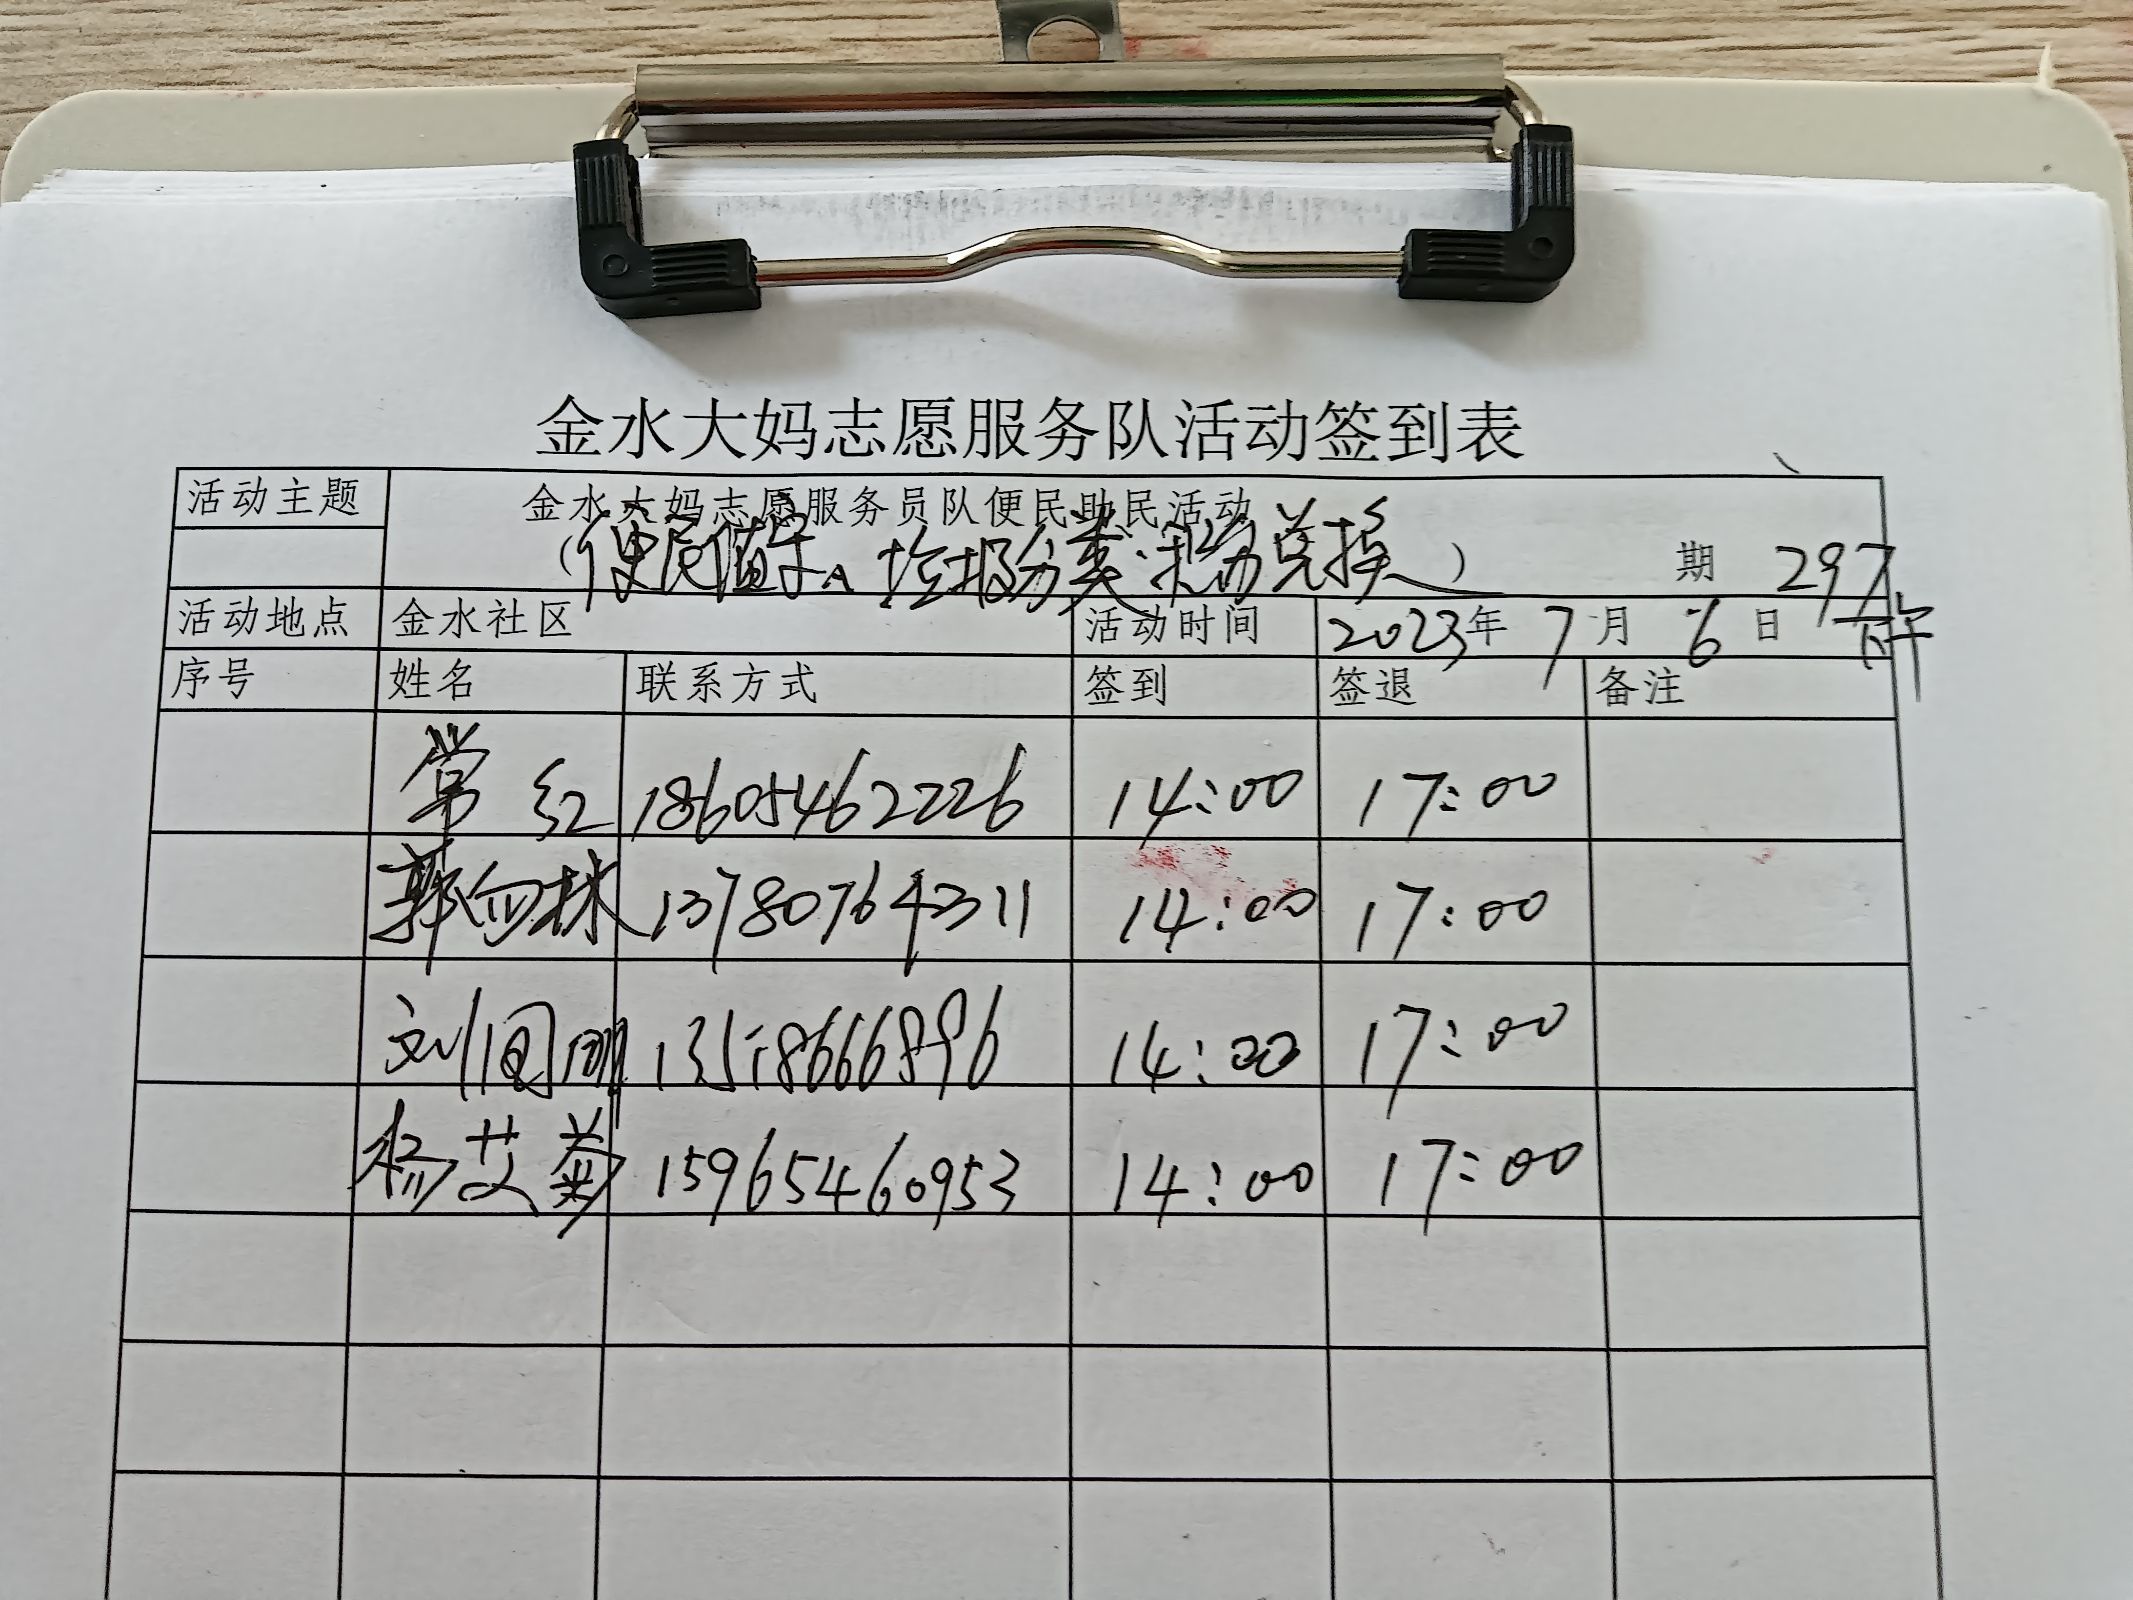 金水大妈志愿服务队活动签到表
活动主题 金水大妈志愿服务员队便民助民活动
（便民值守、垃圾分类积分兑换） 期 297
活动地点 金水社区 活动时间 2023年 7月 6日 下午
序号 姓名 联系方式 签到 签退 备注
常红 18605462226 14:00 17:00
郭向林 13780764311 14:00 17:00
刘国朋 14:00 17:00
杨艾菊 15965460953 14:00 17:00